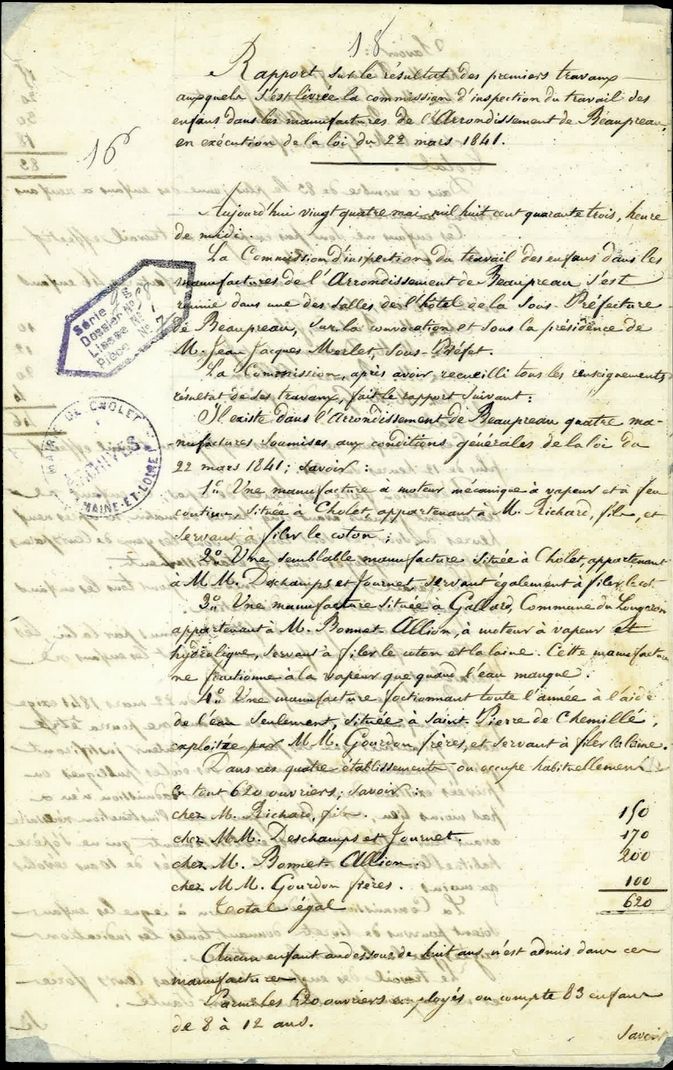 18
Rapport sur le résultat des premiers travaux
auxquels s'est livrée la commission d'inspection du travail des
enfans dans les manufactures de l'Arrondissement de Beaupreau,
en exécution de la loi du 22 mars 1841.
16
Aujourd'hui vingt quatre mai mil huit cent quarante trois, heure
de midi.
La Commission d'inspection du travail des enfans dans les
manufactures de l'Arrondissement de Beaupreau s'est
réunie dans une des salles de l'hôtel de la Sous-Préfecture
de Beaupreau, sur la convocation et sous la présidence de
M. Jean Jacques Morlet, Sous-Préfet.
La Commission, après avoir recueilli tous les renseignemens
résultat de ses travaux, fait le rapport suivant:
Série
Dossier No
Liasse No
Pièce No 7
Il existe dans l'Arrondissement de Beaupreau quatre ma-
nufactures soumises aux conditions générales de la loi du
22 mars 1841; savoir:
MAIRIE DE CHOLET
ARCHIVES
MAINE-ET-LOIRE
1o. Une manufacture à moteur mécanique à vapeur et à feu
continu, située à Cholet, appartenant à M. Richard, fils, et
servant à filer le coton;
2o. Une semblable manufacture située à Cholet, appartenant
à MM. Deschamps et Journet, servant également à filer le cot.
3o. Une manufacture située à Gallard, Commune du Longeron
appartenant à M. Bonnet-Allion, à moteur à vapeur et
hydraulique, servant à filer le coton et la laine. Cette manufacture
ne fonctionne à la vapeur que quand l'eau manque.
4o. Une manufacture foctionnant toute l'année à l'aide
de l'eau seulement, située à Saint-Pierre de Chemillé,
exploitée par MM. Gourdon frères, et servant à filer la laine.
Dans ces quatre établissements on occupe habituellement
en tout 620 ouvriers; savoir:
chez M. Richard, fils. 150
chez MM. Deschamps et Journet. 170
chez M. Bonnet-Allion. 200
chez MM. Gourdon frères. 100
Total égal 620
Aucun enfant au dessous de huit ans n'est admis dans ces
manufactures
Parmi les 620 ouvriers employés on compte 83 enfans
de 8 à 12 ans.
Savoir